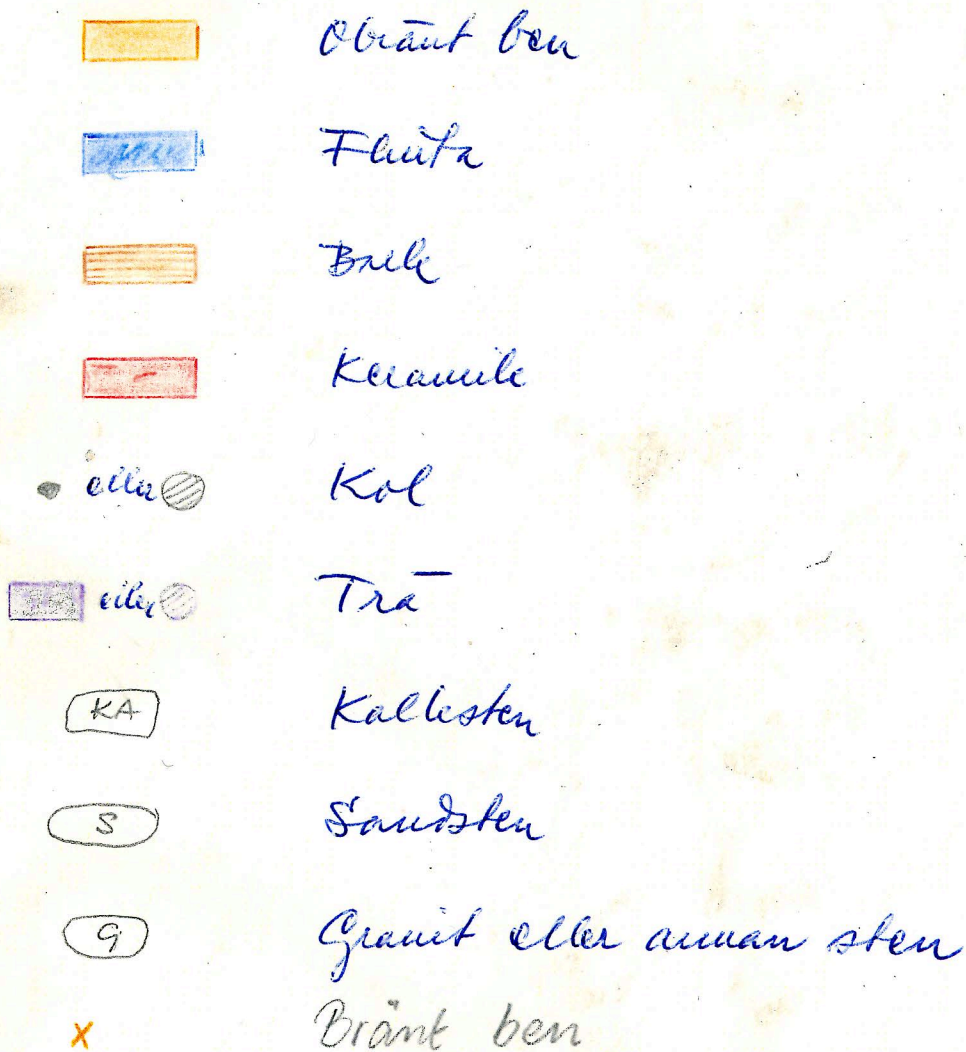 Obränt ben
Flinta
Bark
Keramik
eller Kol
eller Trä
KA Kalksten
S Sandsten
G Granit eller annan sten
x Bränt ben